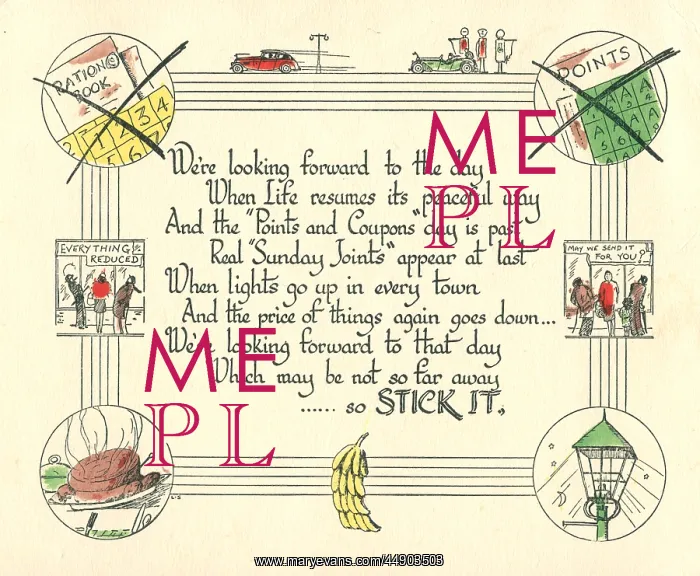 RATION(S)
BOOK
1 2 3 4
POINTS
We're looking forward to the day
When Life resumes its peaceful way
And the "Points and Coupons" day is past
Real "Sunday Joints" appear at last
When lights go up in every town
And the price of things again goes down...
We're looking forward to that day
Which may be not so far away
...... so STICK IT.,
EVERYTHING
REDUCED
MAY WE SEND IT
FOR YOU?
ME
PL
ME
PL
www.maryevans.com/44903503